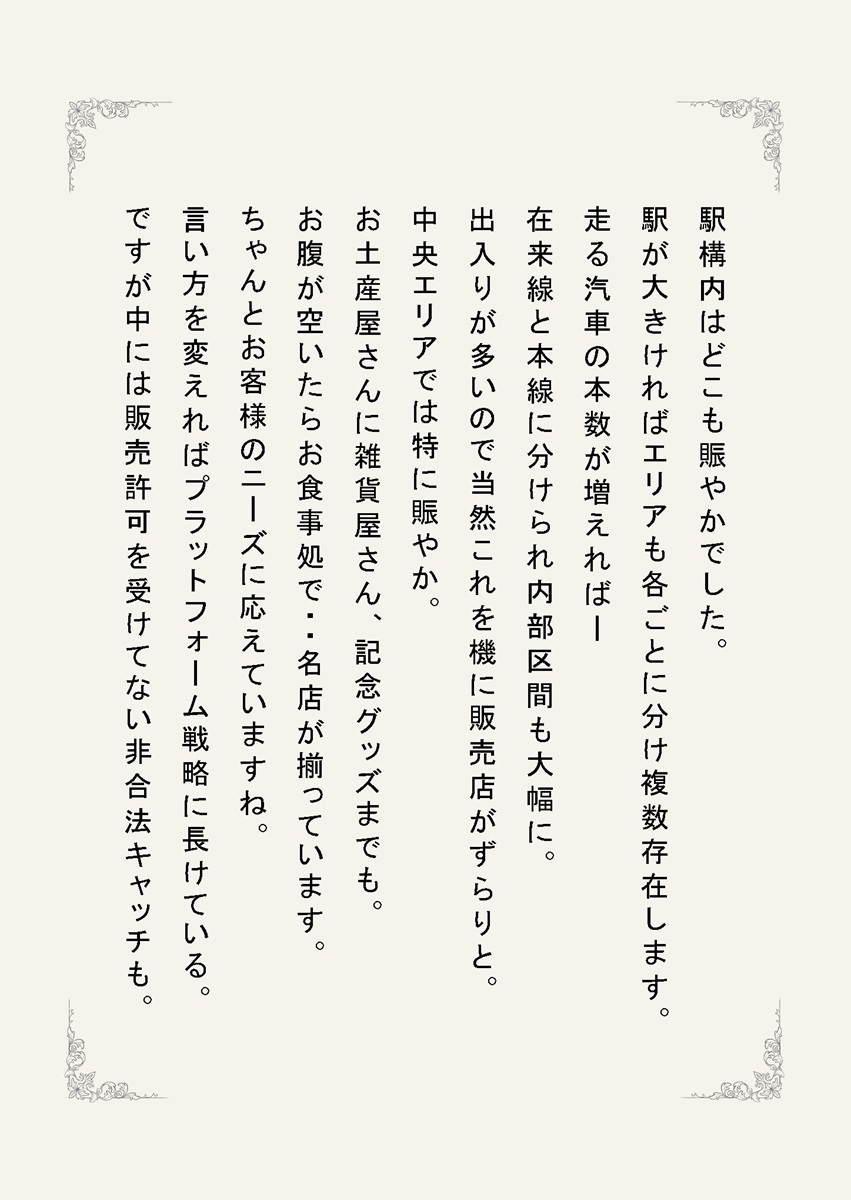 駅構内はどこも賑やかでした。
駅が大きければエリアも各ごとに分け複数存在します。
走る汽車の本数が増えればー
在来線と本線に分けられ内部区間も大幅に。
出入りが多いので当然これを機に販売店がずらりと。
中央エリアでは特に賑やか。
お土産屋さんに雑貨屋さん、記念グッズまでも。
お腹が空いたらお食事処で・・名店が揃っています。
ちゃんとお客様のニーズに応えていますね。
言い方を変えればプラットフォーム戦略に長けている。
ですが中には販売許可を受けてない非合法キャッチも。